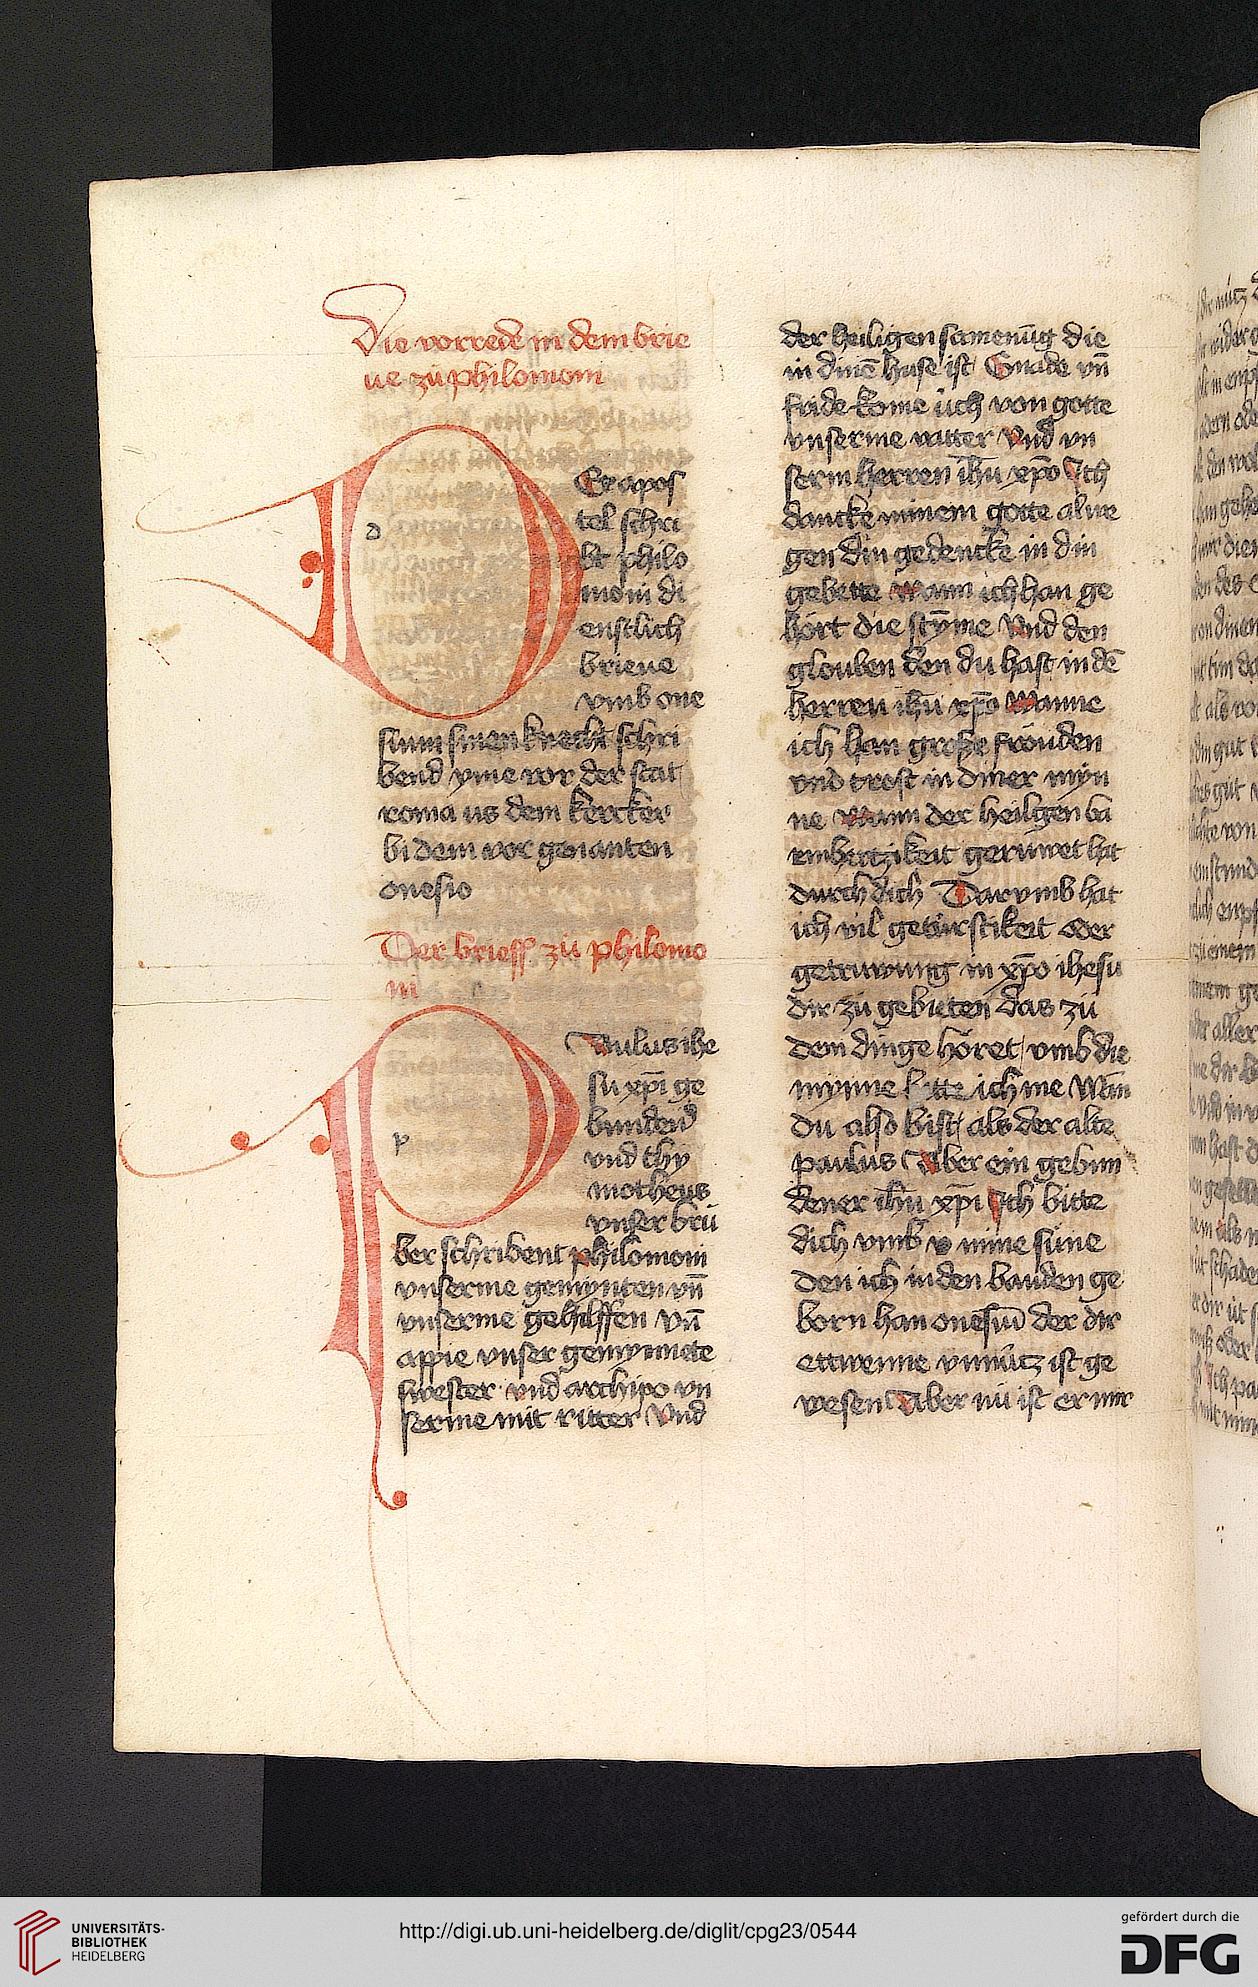 Die vorrede in dem brie
ue zů philomoni
DEr apos
tel schri
bt philo
moni di
enstlich
brieue
vmb one
simm sinen knecht schri
bend yme vor der stat
roma us dem kercker
bi dem vor genanten
onesio
Der brieff zů philomo
ni
PAulus ihe
su xp̄i ge
bunden
vnd thy
motheus
vnser brů
der schribent philomoni
vnserme gemynten vn̄
vnserme gehilffen vn̄
appie vnser gemynnete
swester vnd archipo vn
serme mit ritter Vnd
der heiligen samenūg die
in dinē huse ist Gnade vn̄
fride kome úch von gotte
vnserme vatter Vnd vn
serm herren ih̄u xp̄o Ich
dancke minem gotte alwe
gen din gedencke in din
gebette Wann ich han ge
hört die stȳme Vnd den
glouben den du hast in dē
herren ih̄u xp̄o Wanne
ich han grosze fröuden
vnd trost in diner myn
ne Wann der heiligen ba
rmhertzikeit gerúwet hat
durch dich Darvmb hat
ich vil getúrstikeit oder
getruwung in xp̄o ihesu
dir zů gebieten das zů
dem dinge höret vmb die
mynne bitte ich me Wān
du also bist als der alte
paulus Aber ein gebun
dener ih̄u xp̄i Ich bitte
dich vmb mine súne
den ich in den banden ge
born han onesim̄ der dir
ettwenne vnnútz ist ge
wesen Aber nů ist er mir
UNIVERSITÄTS-
BIBLIOTHEK
HEIDELBERG
http://digi.ub.uni-heidelberg.de/diglit/cpg23/0544
gefördert durch die
DFG